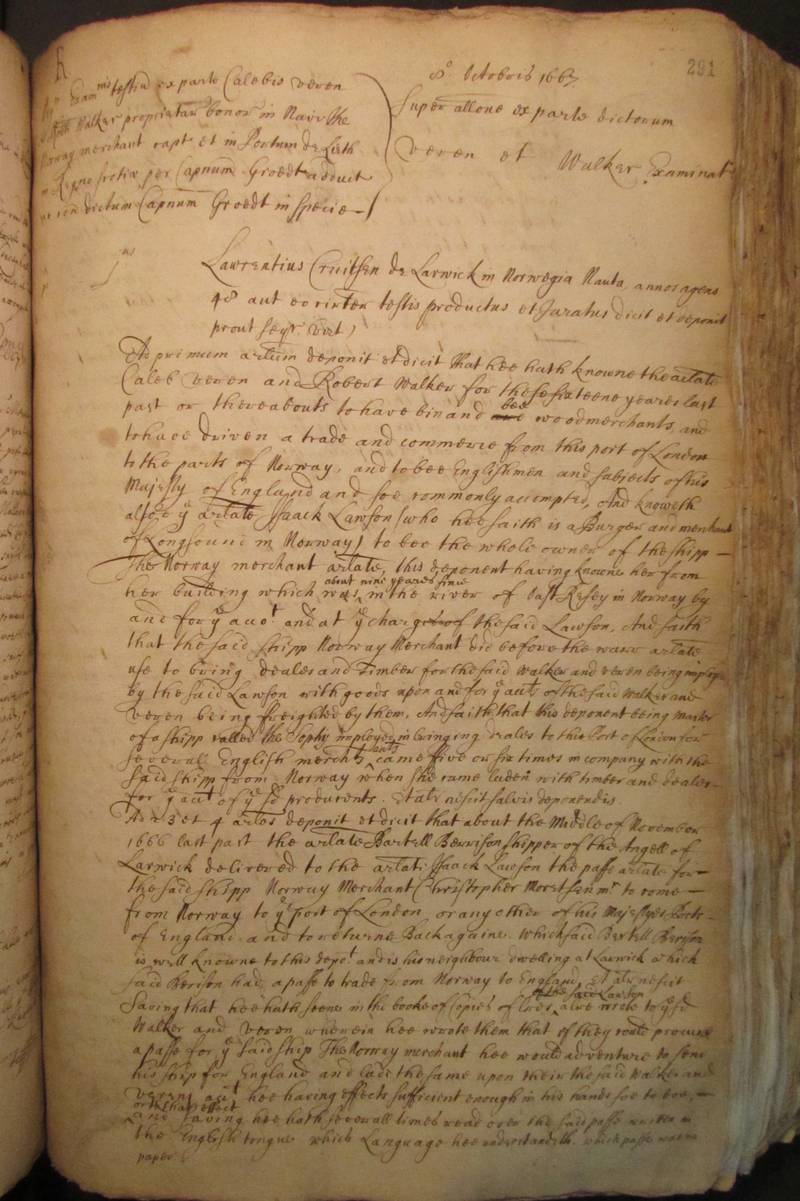 R
291
8º Octobris 1667
Examinatio testium ex parte Calebis veren
Walker proprietar bonor in Navi the
Norway merchant capt et in Portum de Lieth
in Regno Scotiæ per Capnum Groedt adduct
dictum Capnum Groedt in specie
Super allone ex parte dictorum
veren et Walker Examinat
1us
Lawrentius Cruitsen de Larwick in Norwegia Nauta, annos agens
48 aut eo circiter testis productus et Juratus dicit et deponit
prout sequr vizt,
Ad primum artlum deponit et dicit That hee hath knowne the arlate
Caleb veren and Robert Walker for these sixteene yeares last
past or thereabouts to have bin and bee woodmerchants, and
to have driven a trade and commerce from this port of London
to the parts of Norway, and to bee Englishmen and subjects of his
Majesty of England and soe commonly accompted, And knoweth
alsoe ye arlate Isaack Lawson (who hee saith is a Burger and merchant
of Longsound in Norway) to bee the whole owner of the shipp
The Norway merchant arlate, this deponent having knowne her from
her building which was about nine yeares since in the river of East Riseg in Norway by
and for ye accot. and at ye charges of the said Lawson, And saith
that the said shipp Norway Merchant did before the warr arlate
use to bring deales and timber for the said Walker and veren being imployed
by the said Lawson with goods upon and for ye accot of the said Walker and
veren being freighted by them, And saith that this deponent being master
of a shipp called the Sophy imployed in bringing deales to this Port of London for
severall English merchts came five or six times in company with the
said shipp from Norway when she came laden with timber and deales
for ye accot of ye sd producents. Et alr nescit salvis deponendis.
Ad 3 et 4 arlos deponit et dicit that about the Middle of November
1666 last past the arlate Bartell Berrison skipper of the Angell of
Larwick delivered to the arlate Isaack Lawson the passe arlate for
the said shipp Norway Merchant Christopher Moretsen mr to come
from Norway to ye port of London or any other of his Majestyes Ports
of England and to returne Back againe. Which said Bertell Berison
is well knowne to this depot and is his neighbour dwelling at Larwick which
said Berison had a passe to trade from Norway to England, Et alr nescit
Saving that hee hath seene in the booke of Copies of the said Lawson alsoe wrote to ye sd
Walker and veren wherein hee wrote them that if they could procure
a passe for ye said ship The Norway merchant hee would adventure to send
his ship for England and lade the same upon their the said Walker and
verens accot hee having effects sufficient enough in his hands soe to doe,
or to that effect
and saving hee hath severall times read over the said passe written in
the English tongue which Language hee understandeth. which passe was in
paper